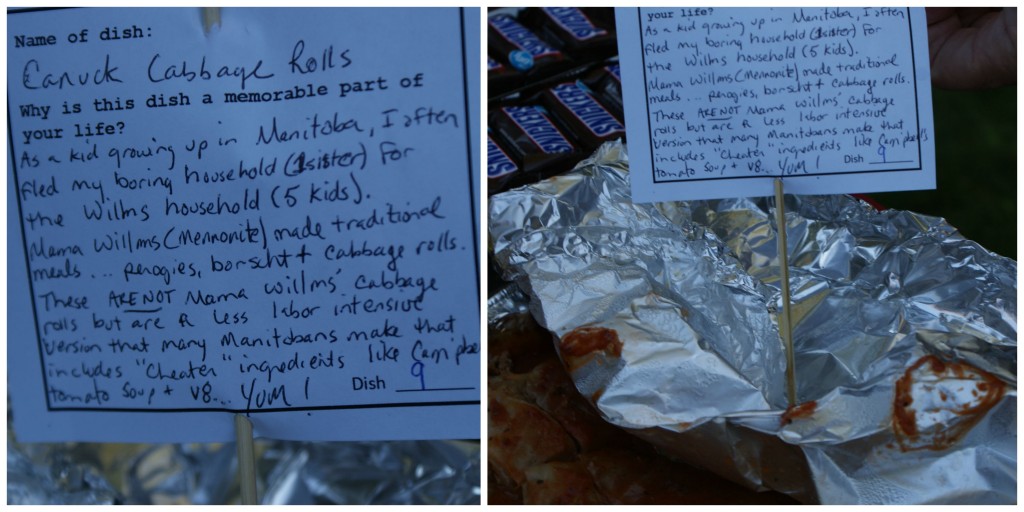 Name of dish:
Canuck Cabbage Rolls
Why is this dish a memorable part of
your life?
As a kid growing up in Manitoba, I often
fled my boring household (1 sister) for
the Willms household (5 kids).
Mama Willms (Mennonite) made traditional
meals ... perogies, borscht + cabbage rolls.
These ARE NOT Mama Willms' cabbage
rolls but are a less labor intensive
version that many Manitobans make that
includes "Cheater" ingredients like Campbells
tomato soup + V8... Yum!
Dish 9
your life?
As a kid growing up in Manitoba, I often
fled my boring household (1 sister) for
the Willms household (5 kids).
Mama Willms (Mennonite) made traditional
meals ... perogies, borscht + cabbage rolls.
These ARE NOT Mama Willms' cabbage
rolls but are a less labor intensive
version that many Manitobans make that
includes "Cheater" ingredients like Campbells
tomato soup + V8... Yum!
Dish 9
SNICKERS
SNICKERS
SNICKERS
SNICKERS